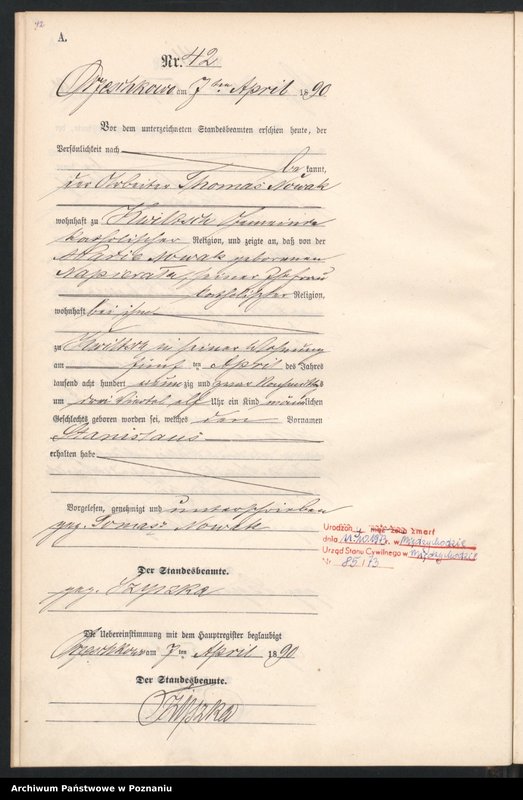 42
A.
Nr. 42
Orzeschkowo am 7 ten April 1890
Vor dem unterzeichneten Standesbeamten erschien heute, der
Persönlichkeit nach
bekannt,
der Arbeiter Thomas Nowak
wohnhaft zu Kwiltsch Gemeinde
katholischer Religion, und zeigte an, daß von der
Marie Nowak geborenen
Napierala, seiner Ehefrau
katholischer Religion,
wohnhaft bei ihm
zu Kwiltsch in seiner Wohnung
am fünf ten April des Jahres
tausend acht hundert neunzig und zwar Nachmittags
um drei Viertel elf Uhr ein Kind männlichen
Geschlechts geboren worden sei, welches den Vornamen
Stanislaus
erhalten habe
Vorgelesen, genehmigt und unterschrieben
gez. Tomasz Nowak
Urodzony zmarł
dnia 11.10.1973 r. w Międzychodzie
Urząd Stanu Cywilnego w Międzychodzie
Nr 85/73
Der Standesbeamte.
gez. Szyszka
Die Uebereinstimmung mit dem Hauptregister beglaubigt
Orzeschkowo am 7 ten April 1890
Der Standesbeamte.
Szyszka
Archiwum Państwowe w Poznaniu